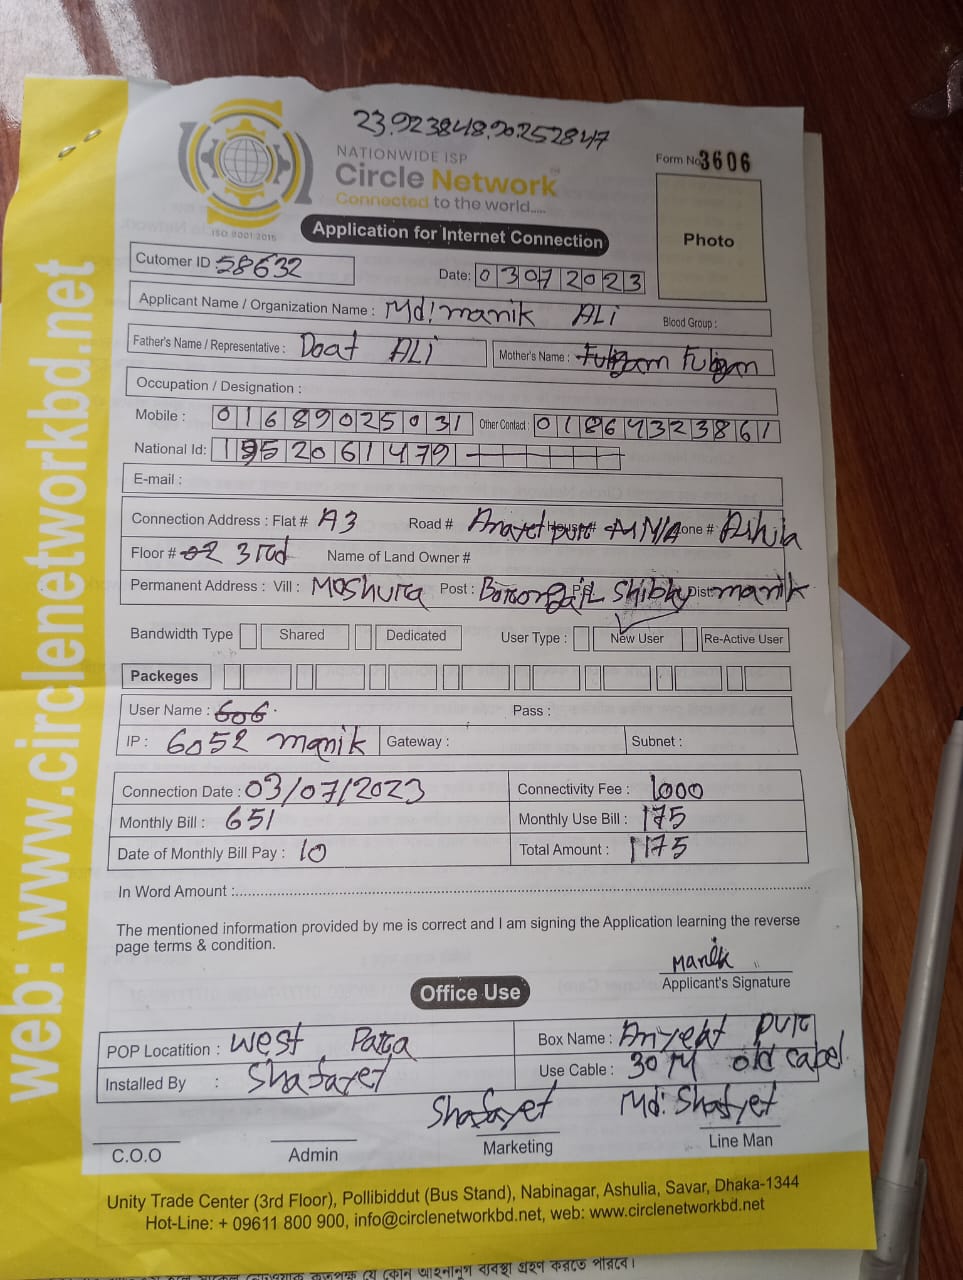 23.923848,90.252847
NATIONWIDE ISP
Circle Network™
Connected to the world.....
ISO 9001:2015
Form No 3606
Photo
Application for Internet Connection
Cutomer ID 58632
Date: 03072023
Applicant Name / Organization Name : Md: manik ALi Blood Group :
Father's Name / Representative : Doat ALi Mother's Name :
Occupation / Designation :
Mobile : 01689025031 Other Contact : 01864323861
National Id: 1952061479
E-mail :
Connection Address : Flat # A3 Road # House # Zone #
Floor # 02 3rd Name of Land Owner #
Permanent Address : Vill : Moshura Post : P.S: Dist: manik
Bandwidth Type Shared Dedicated User Type : New User Re-Active User
Packeges
User Name : 606 Pass :
IP : 6052 manik Gateway : Subnet :
Connection Date : 03/07/2023 Connectivity Fee : 1000
Monthly Bill : 651 Monthly Use Bill : 175
Date of Monthly Bill Pay : 10 Total Amount : 1175
In Word Amount :
The mentioned information provided by me is correct and I am signing the Application learning the reverse
page terms & condition.
Manik
Applicant's Signature
Office Use
POP Locatition : West Para Box Name : Anyeat pur
Installed By : Shafayet Use Cable : 30 M old cabel
Shafayet Md: Shafyet
C.O.O Admin Marketing Line Man
Unity Trade Center (3rd Floor), Pollibiddut (Bus Stand), Nabinagar, Ashulia, Savar, Dhaka-1344
Hot-Line: + 09611 800 900, info@circlenetworkbd.net, web: www.circlenetworkbd.net
web: www.circlenetworkbd.net
কর্তৃপক্ষ যে কোন আইনানুগ ব্যবস্থা গ্রহণ করতে পারবে।